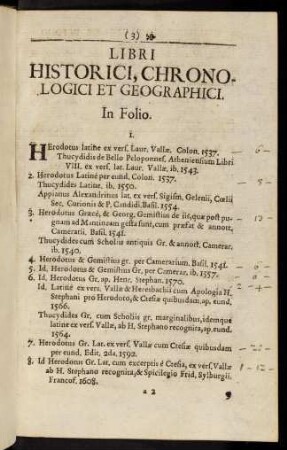 (3)
LIBRI
HISTORICI, CHRONO-
LOGICI ET GEOGRAPHICI.
In Folio.
1.
Herodotus latine ex vers. Laur. Vallæ. Colon. 1537.
Thucydidis de Bello Peloponnes. Atheniensium Libri
VIII. ex vers. lat. Laur. Vallæ, ib. 1543.
2. Herodotus Latine per eund. Colon. 1537.
Thucydides Latine, ib. 1550.
Appianus Alexandrinus lat. ex vers. Sigism. Gelenii, Cœlii
Sec. Curionis & P. Candidi. Basil. 1554.
3. Herodotus Græcè, & Georg. Gemistius de iis, quæ post pu-
gnam ad Mantineam gesta sunt, cum præfat & annott.
Camerarii. Basil. 1541.
Thucydides cum Scholiis antiquis Gr. & annott. Camerar.
ib. 1540.
4. Herodotus & Gemistius gr. per Camerarium. Basil. 1541.
5. Id. Herodotus & Gemistius Gr, per Camerar. ib. 1557.
6. Id. Herodotus Gr. ap. Henr. Stephan. 1570.
Id. Latinè ex vers. Vallæ & Heresbachii cum Apologia H.
Stephani pro Herodoto, & Ctesiæ quibusdam. ap. eund.
1566.
Thucydides Gr. cum Scholiis gr. marginalibus, idemque
latine ex vers. Vallæ, ab H. Stephano recognita, ap. eund.
1564.
7. Herodotus Gr. Lat. ex vers. Vallæ cum Ctesiæ quibusdam
per eund. Edit. 2da. 1592.
8. Id Herodotus Gr. Lat, cum excerptis è Ctesia, ex vers. Vallæ
ab H. Stephano recognita, & Spicilegio Frid. Sylburgii.
Francof. 1608.
a 2
9